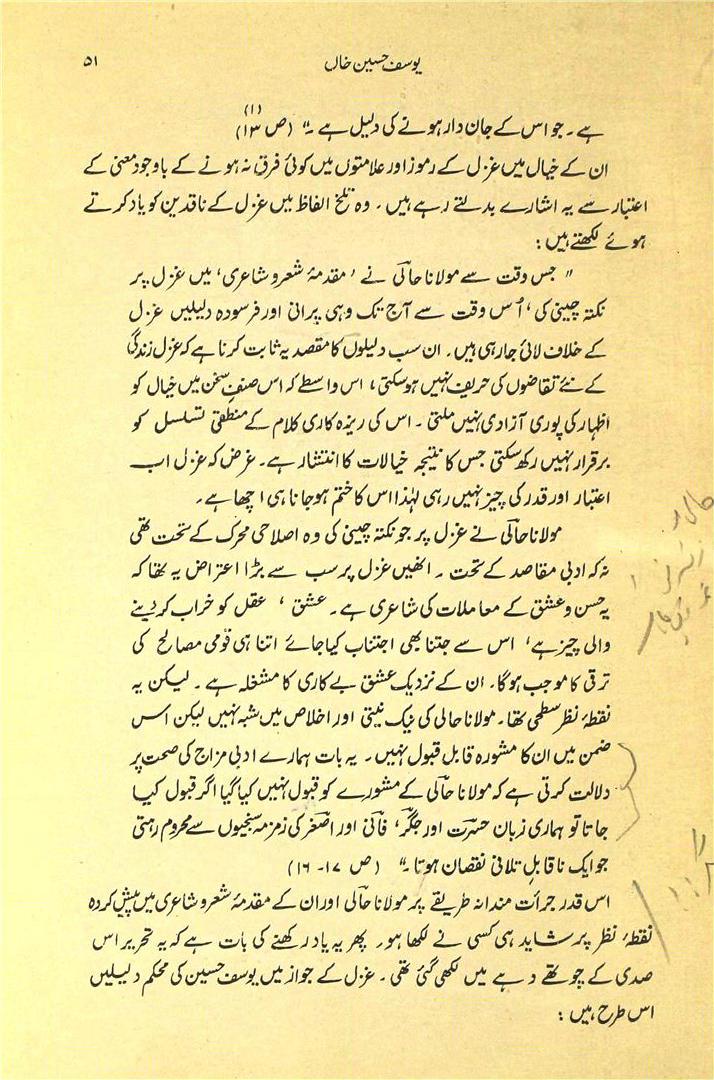 یوسف حسین خاں
۵۱
ہے۔ جو اس کے جان دار ہونے کی دلیل ہے ۔" (ص ۱۳) (۱)
ان کے خیال میں غزل کے رموز اور علامتوں میں کوئی فرق نہ ہونے کے باوجود معنی کے
اعتبار سے یہ اشارے بدلتے رہے ہیں ۔ وہ تلخ الفاظ میں غزل کے ناقدین کو یاد کرتے
ہوئے لکھتے ہیں :
" جس وقت سے مولانا حالی نے 'مقدمۂ شعر و شاعری' میں غزل پر
نکتہ چینی کی ' اُس وقت سے آج تک وہی پرانی اور فرسودہ دلیلیں غزل
کے خلاف لائی جا رہی ہیں ۔ ان سب دلیلوں کا مقصد یہ ثابت کرنا ہے کہ غزل زندگی
کے نئے تقاضوں کی حریف نہیں ہو سکتی ، اس واسطے کہ اس صنفِ سخن میں خیال کو
اظہار کی پوری آزادی نہیں ملتی ۔ اس کی ریزہ کاری کلام کے منطقی تسلسل کو
برقرار نہیں رکھ سکتی جس کا نتیجہ خیالات کا انتشار ہے۔ غرض کہ غزل اب
اعتبار اور قدر کی چیز نہیں رہی لہٰذا اس کا ختم ہو جانا ہی اچھا ہے ۔
مولانا حالی نے غزل پر جو نکتہ چینی کی وہ اصلاحی محرک کے تحت تھی
نہ کہ ادبی مقاصد کے تحت ۔ انھیں غزل پر سب سے بڑا اعتراض یہ تھا کہ
یہ حسن و عشق کے معاملات کی شاعری ہے ۔ عشق ' عقل کو خراب کر دینے
والی چیز ہے ' اس سے جتنا بھی اجتناب کیا جائے اتنا ہی قومی مصالح کی
ترقی کا موجب ہو گا ۔ ان کے نزدیک عشق بے کاری کا مشغلہ ہے ۔ لیکن یہ
نقطۂ نظر سطحی تھا ۔ مولانا حالی کی نیک نیتی اور اخلاص میں شبہ نہیں لیکن اس
ضمن میں ان کا مشورہ قابل قبول نہیں ۔ یہ بات ہمارے ادبی مزاج کی صحت پر
دلالت کرتی ہے کہ مولانا حالی کے مشورے کو قبول نہیں کیا گیا اگر قبول کیا
جاتا تو ہماری زبان حسرت اور جگر ' فانی اور اصغر کی زمزمہ سنجیوں سے محروم رہتی
جو ایک ناقابلِ تلافی نقصان ہوتا ۔" (ص ۱۷-۱۶)
اس قدر جرأت مندانہ طریقے پر مولانا حالی اور ان کے مقدمۂ شعر و شاعری میں پیش کردہ
نقطۂ نظر پر شاید ہی کسی نے لکھا ہو ۔ پھر یہ یاد رکھنے کی بات ہے کہ یہ تحریر اس
صدی کے چوتھے دہے میں لکھی گئی تھی ۔ غزل کے جواز میں یوسف حسین کی محکم دلیلیں
اس طرح ہیں :